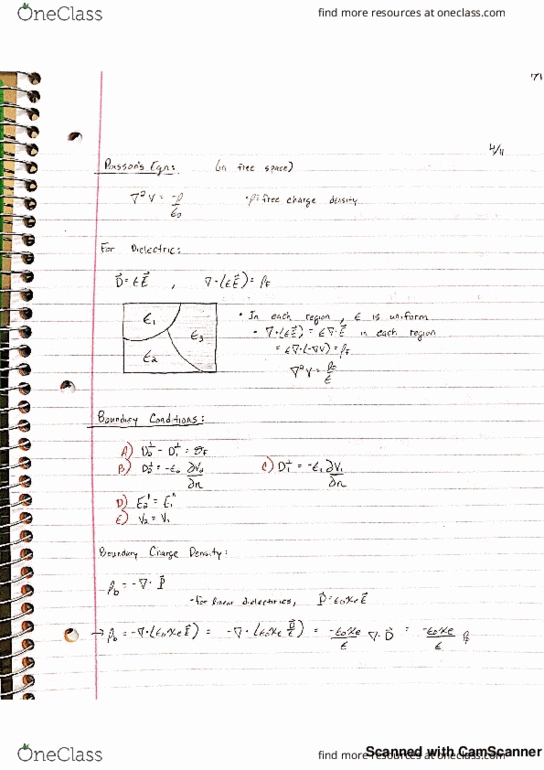 OneClass
find more resources at oneclass.com
71
4/11
Poisson's Eqn: (in free space)
∇²V = -ρ/ε₀ · ρ: free charge density
For Dielectric:
D⃗ = εE⃗ , ∇·(εE⃗) = ρf
ε₁
ε₂
ε₃
· In each region, ε is uniform
- ∇·(εE⃗) = ε∇·E⃗ in each region
= ε∇·(-∇V) = ρf
∇²V = ρf/ε
Boundary Conditions:
A) D₂⊥ - D₁⊥ = σf
B) D₂⊥ = -ε₂ ∂V₂/∂n C) D₁⊥ = -ε₁ ∂V₁/∂n
D) E₂" = E₁"
E) V₂ = V₁
Boundary Charge Density:
ρb = -∇· P⃗
- for linear dielectrics, P⃗ = ε₀χeE⃗
→ ρb = -∇·(ε₀χeE⃗) = -∇·(ε₀χe D⃗/ε) = -ε₀χe/ε ∇·D⃗ = -ε₀χe/ε ρf
OneClass
find more resources at oneclass.com
Scanned with CamScanner